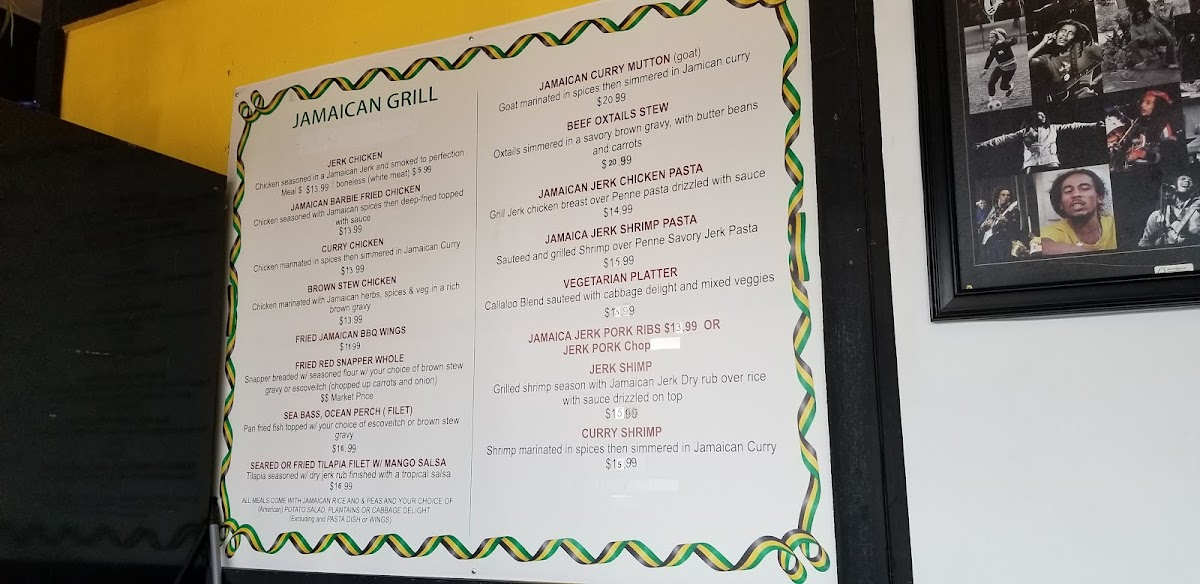 JAMAICAN GRILL
JERK CHICKEN
Chicken seasoned in a Jamaican Jerk and smoked to perfection
Meal $ $13.99 boneless (white meat) $ 5.99
JAMAICAN BARBIE FRIED CHICKEN
Chicken seasoned with Jamaican spices then deep-fried topped
with sauce
$13.99
CURRY CHICKEN
Chicken marinated in spices then simmered in Jamaican Curry
$13.99
BROWN STEW CHICKEN
Chicken marinated with Jamaican herbs, spices & veg in a rich
brown gravy
$13.99
FRIED JAMAICAN BBQ WINGS
$11.99
FRIED RED SNAPPER WHOLE
Snapper breaded w/ seasoned flour w/ your choice of brown stew
gravy or escoveitch (chopped up carrots and onion)
$$ Market Price
SEA BASS, OCEAN PERCH ( FILET)
Pan fried fish topped w/ your choice of escoveitch or brown stew
gravy
$16.99
SEARED OR FRIED TILAPIA FILET W/ MANGO SALSA
Tilapia seasoned w/ dry jerk rub finished with a tropical salsa
$16.99
ALL MEALS COME WITH JAMAICAN RICE AND & PEAS AND YOUR CHOICE OF
(American) POTATO SALAD, PLANTAINS OR CABBAGE DELIGHT
(Excluding and PASTA DISH or WINGS)
JAMAICAN CURRY MUTTON (goat)
Goat marinated in spices then simmered in Jamican curry
$20.99
BEEF OXTAILS STEW
Oxtails simmered in a savory brown gravy, with butter beans
and carrots
$20.99
JAMAICAN JERK CHICKEN PASTA
Grill Jerk chicken breast over Penne pasta drizzled with sauce
$14.99
JAMAICA JERK SHRIMP PASTA
Sauteed and grilled Shrimp over Penne Savory Jerk Pasta
$15.99
VEGETARIAN PLATTER
Callaloo Blend sauteed with cabbage delight and mixed veggies
JAMAICA JERK PORK RIBS $13.99 OR
JERK PORK Chop
JERK SHIMP
Grilled shrimp season with Jamaican Jerk Dry rub over rice
with sauce drizzled on top
$15.99
CURRY SHRIMP
Shrimp marinated in spices then simmered in Jamaican Curry
$15.99